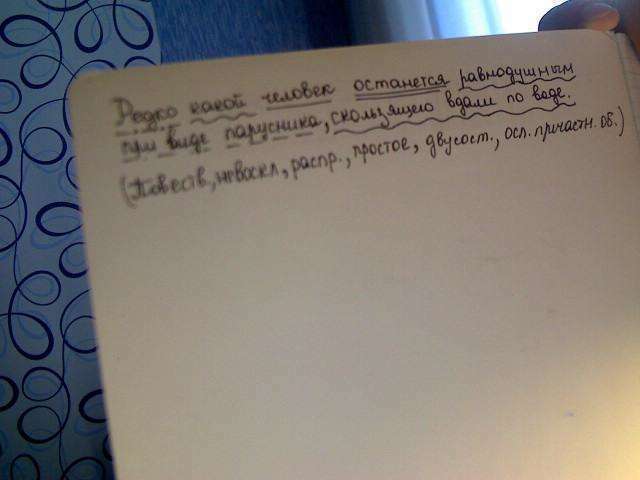 Редко какой человек останется равнодушным
при виде парусника, скользящего вдали по воде.
(Повеств., невоскл., распр., простое, двусост., осл. причастн. об.)